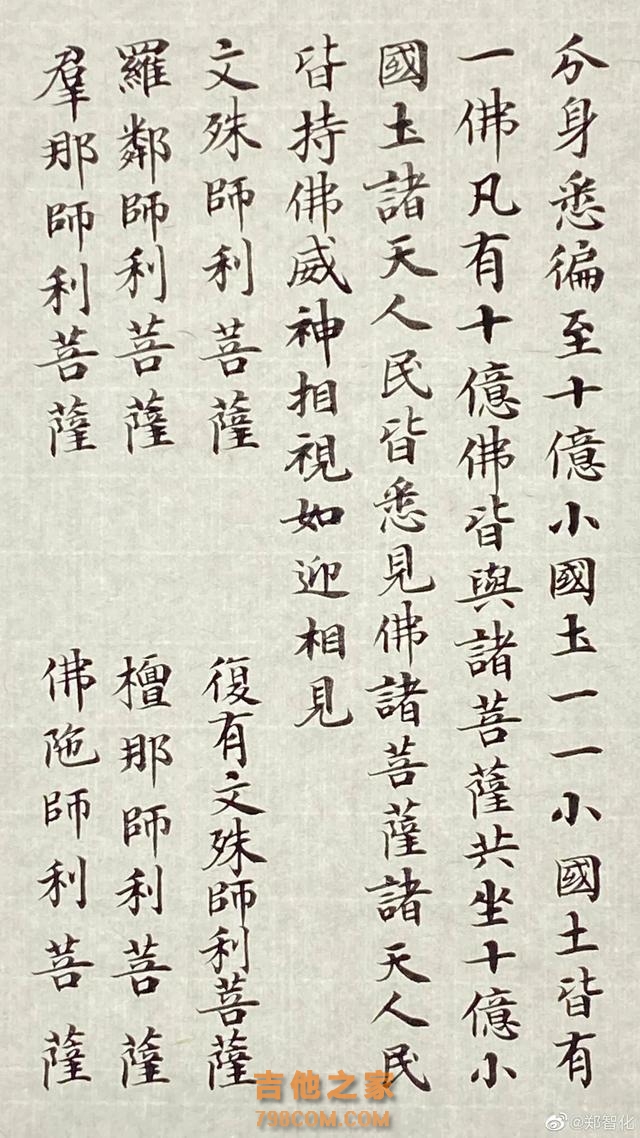 分身悉徧至十億小國土一一小國土皆有
一佛凡有十億佛皆與諸菩薩共坐十億小
國土諸天人民皆悉見佛諸菩薩諸天人民
皆持佛威神相視如迎相見
文殊師利菩薩 復有文殊師利菩薩
羅鄰師利菩薩 檀那師利菩薩
羣那師利菩薩 佛陁師利菩薩
吉他之家
798COM.COM
@郑智化